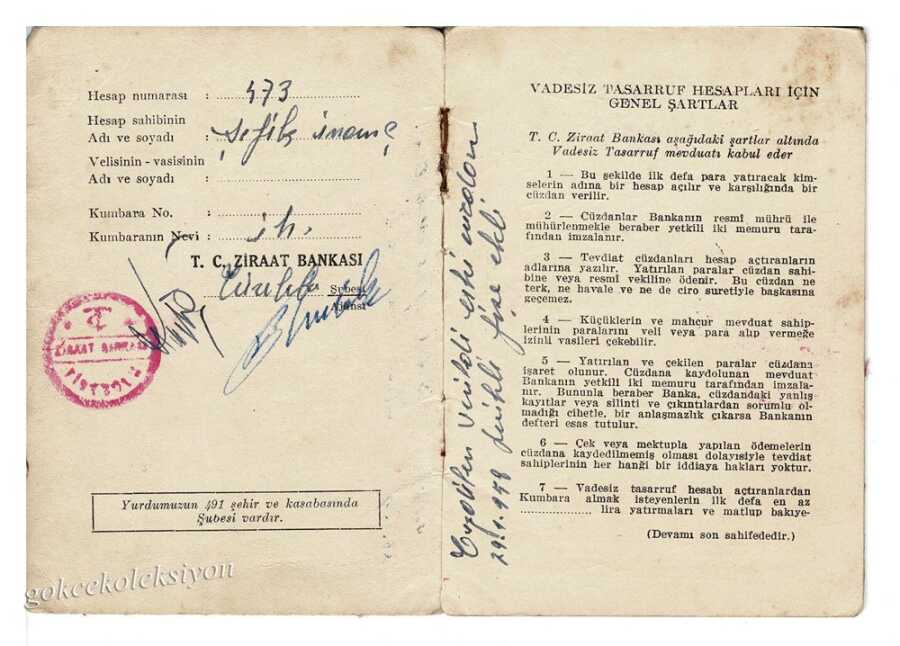 Hesap numarası : 473
Hesap sahibinin
Adı ve soyadı : Şefik inanç
Velisinin - vasisinin
Adı ve soyadı :
Kumbara No. :
Kumbaranın Nevi :
T. C. ZİRAAT BANKASI
Şubesi
Ajansı
T.C.
ZİRAAT BANKASI
Yurdumuzun 491 şehir ve kasabasında
Şubesi vardır.
gokcekoleksiyon
verildi eski
29.1.958 tarihli fişe ekli
VADESİZ TASARRUF HESAPLARI İÇİN
GENEL ŞARTLAR
T. C. Ziraat Bankası aşağıdaki şartlar altında
Vadesiz Tasarruf mevduatı kabul eder
1 — Bu şekilde ilk defa para yatıracak kim-
selerin adına bir hesap açılır ve karşılığında bir
cüzdan verilir.
2 — Cüzdanlar Bankanın resmî mührü ile
mühürlenmekle beraber yetkili iki memuru tara-
fından imzalanır.
3 — Tevdiat cüzdanları hesap açtıranların
adlarına yazılır. Yatırılan paralar cüzdan sahi-
bine veya resmî vekiline ödenir. Bu cüzdan ne
terk, ne havale ve ne de ciro suretiyle başkasına
geçemez.
4 — Küçüklerin ve mahcur mevduat sahip-
lerinin paralarını veli veya para alıp vermeğe
izinli vasileri çekebilir.
5 — Yatırılan ve çekilen paralar cüzdana
işaret olunur. Cüzdana kaydolunan mevduat
Bankanın yetkili iki memuru tarafından imzala-
nır. Bununla beraber Banka, cüzdandaki yanlış
kayıtlar veya silinti ve çıkıntılardan sorumlu ol-
madığı cihetle, bir anlaşmazlık çıkarsa Bankanın
defteri esas tutulur.
6 — Çek veya mektupla yapılan ödemelerin
cüzdana kaydedilmemiş olması dolayısiyle tevdiat
sahiplerinin her hangi bir iddiaya hakları yoktur.
7 — Vadesiz tasarruf hesabı açtıranlardan
Kumbara almak isteyenlerin ilk defa en az
.................. lira yatırmaları ve matlup bakıye-
(Devamı son sahifededir.)